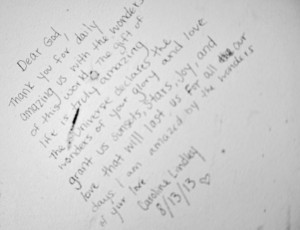 Dear God,
Thank you for daily
amazing us with the wonders
of this world. The gift of
life is truly amazing
The universe declares the
wonders of your glory and love
grant us sunsets, stars, joy, and
love that will last us for all our
days. I am amazed by the wonders
of your love
Caroline
8/13/13 ♡